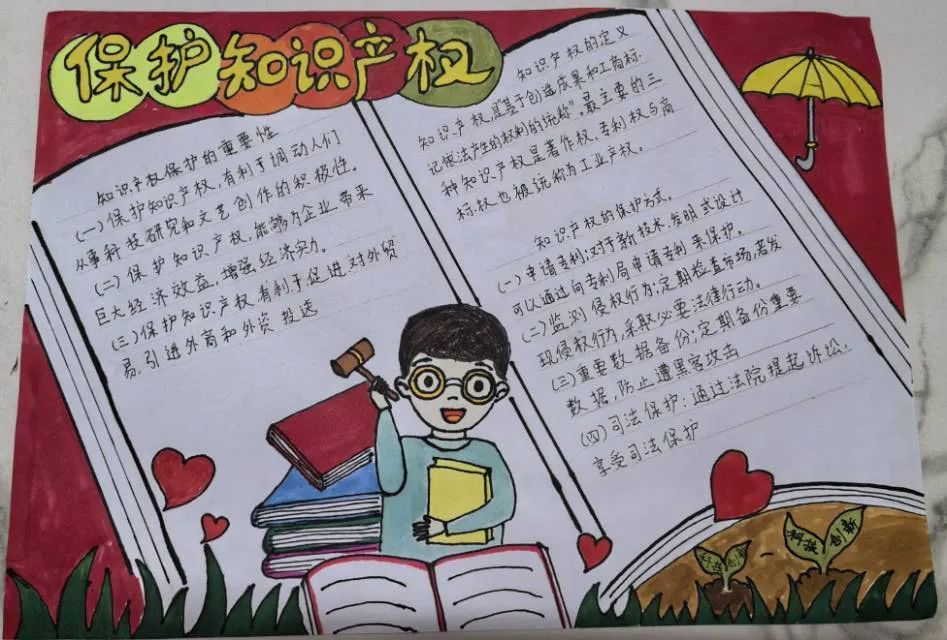 保护知识产权
知识产权保护的重要性
(一)保护知识产权,有利于调动人们
从事科技研究和文艺创作的积极性。
(二)保护知识产权,能够为企业带来
巨大经济效益,增强经济实力。
(三)保护知识产权有利于促进对外贸
易,引进外商和外资投选
知识产权的定义
知识产权,是“基于创造成果和工商标
记依法产生的权利的统称”。最主要的三
种知识产权是著作权、专利权与商
标权也被统称为工业产权。
知识产权的保护方式。
(一)申请专利;对于新技术,发明式设计
可以通过向专利局申请专利来保护。
(二)监测侵权行为;定期检查市场,若发
现侵权行为,采取必要法律行动。
(三)重要数据备份;定期备份重要
数据,防止遭黑客攻击
(四)司法保护:通过法院提起诉讼,
享受司法保护
科技 创新
科技 创新